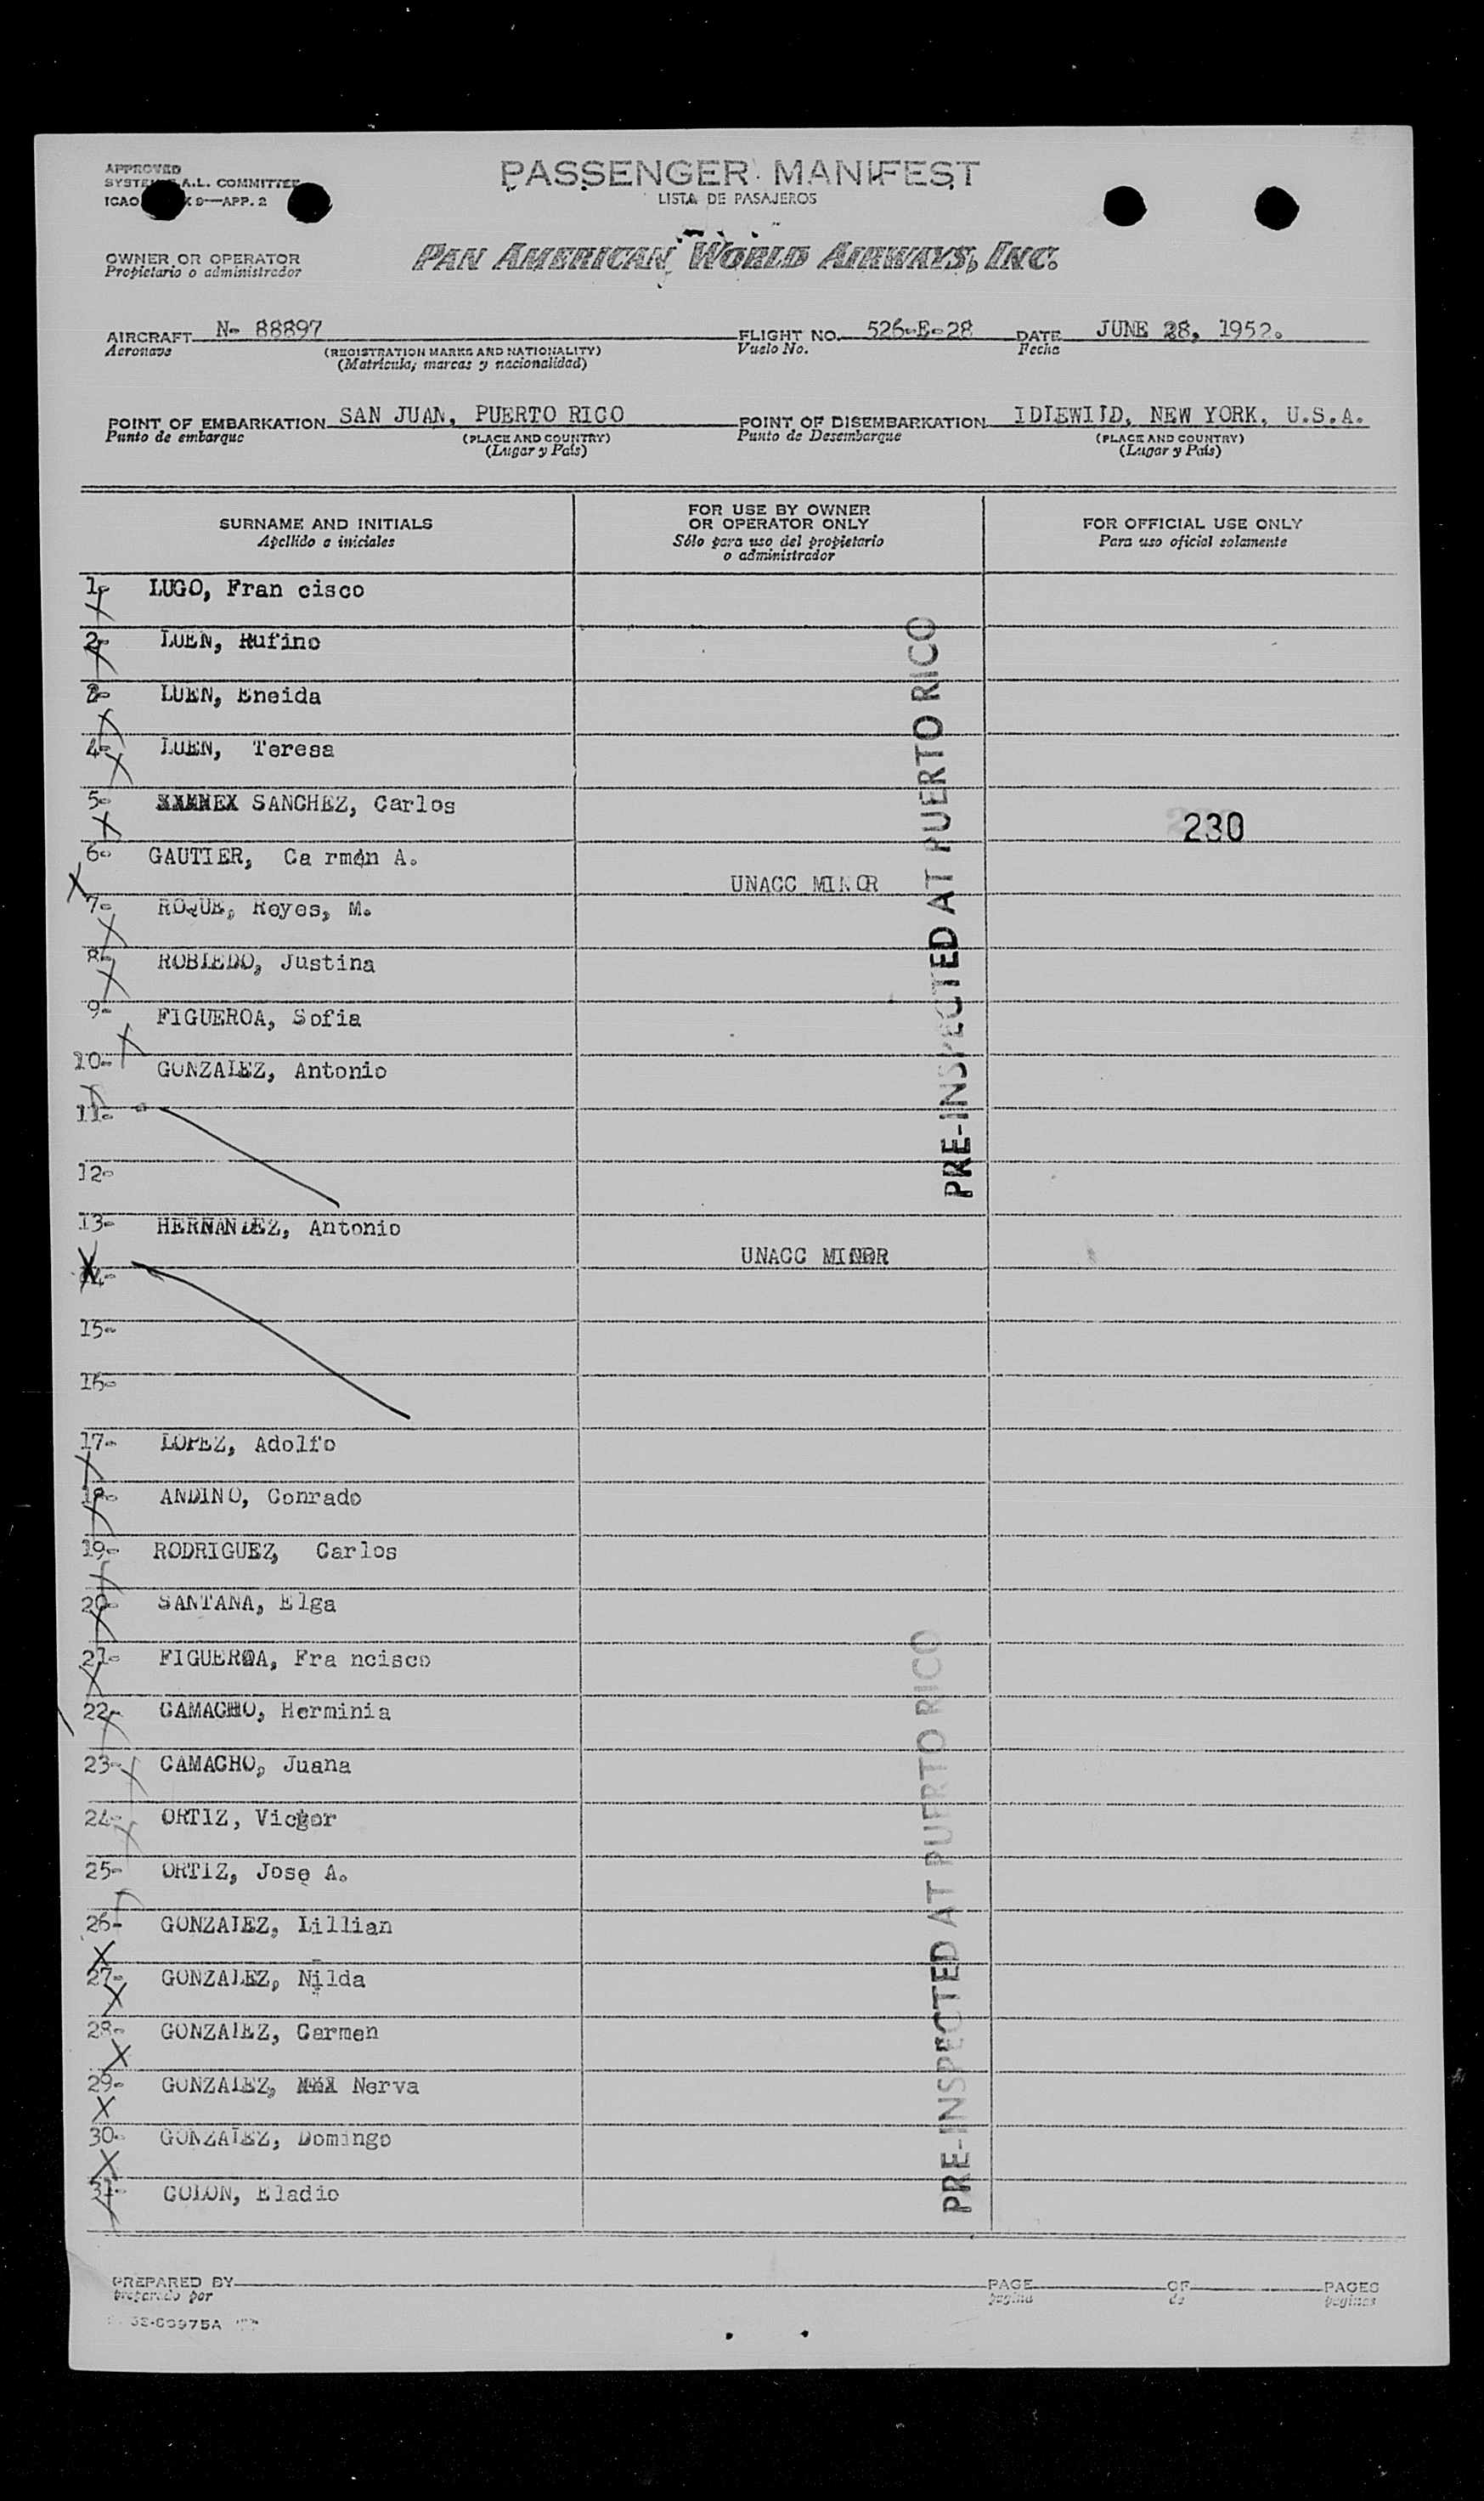 APPROVED
PASSENGER MANIFEST
LISTA DE PASAJEROS
A.L. COMMITTEE
ICAO 9—APP. 2
OWNER OR OPERATOR
Propietario o administrador
PAN AMERICAN WORLD AIRWAYS, INC.
AIRCRAFT N- 88897 FLIGHT NO. 526-E-28 DATE JUNE 28, 1952.
Aeronave (REGISTRATION MARKS AND NATIONALITY) Vuelo No. Fecha
(Matrícula, marcas y nacionalidad)
POINT OF EMBARKATION SAN JUAN, PUERTO RICO POINT OF DISEMBARKATION IDLEWILD, NEW YORK, U.S.A.
Punto de embarque (PLACE AND COUNTRY) Punto de Desembarque (PLACE AND COUNTRY)
(Lugar y País) (Lugar y País)
SURNAME AND INITIALS FOR USE BY OWNER OR OPERATOR ONLY FOR OFFICIAL USE ONLY
Apellido e iniciales Sólo para uso del propietario o administrador Para uso oficial solamente
1- LUGO, Fran cisco
2- LUEN, Rufino
3- LUEN, Eneida
4- LUEN, Teresa
5- SANCHEZ, Carlos
230
6- GAUTIER, Ca rmen A.
UNACC MINOR
7- ROQUE, Reyes, M.
8- ROBLEDO, Justina
9- FIGUEROA, Sofia
10- GONZALEZ, Antonio
11-
12-
PRE-INSPECTED AT PUERTO RICO
13- HERNANDEZ, Antonio
UNACC MINOR
14-
15-
16-
17- LOPEZ, Adolfo
18- ANDINO, Conrado
19- RODRIGUEZ, Carlos
20- SANTANA, Elga
21- FIGUEROA, Fra ncisco
22- CAMACHO, Herminia
23- CAMACHO, Juana
24- ORTIZ, Victor
25- ORTIZ, Jose A.
26- GONZALEZ, Lillian
27- GONZALEZ, Nilda
28- GONZALEZ, Carmen
29- GONZALEZ, Nerva
30- GONZALEZ, Domingo
31- COLON, Eladio
PRE-INSPECTED AT PUERTO RICO
PREPARED BY PAGE OF PAGES
preparado por pagina de paginas